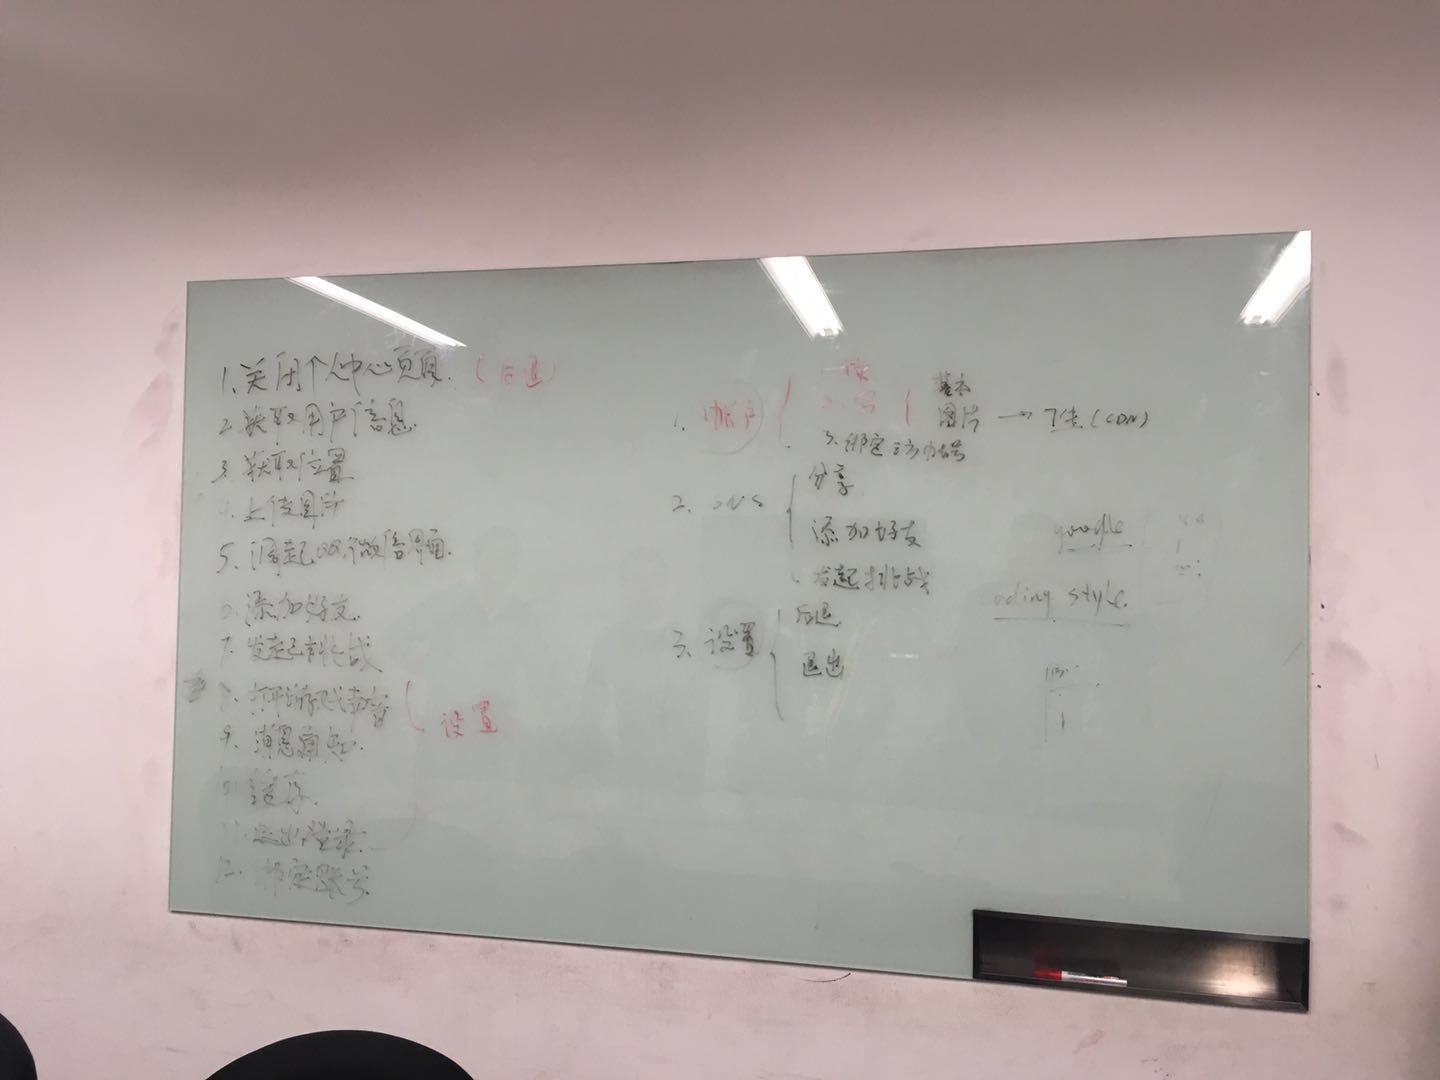 1.关闭个人中心页面.(后退)
2.获取用户信息.
3.获取位置
4.上传图片
5.调起QQ、微信界面.
6.添加好友.
7.发起挑战
8.打开游戏声音
9.消息通知.
设置
退出登录.
12.绑定账号
1.帐户
2.写
基本
图片→下发(CDN)
3.绑定
2.SNS
分享
添加好友
发起挑战
3.设置
后退
退出
google
coding style.